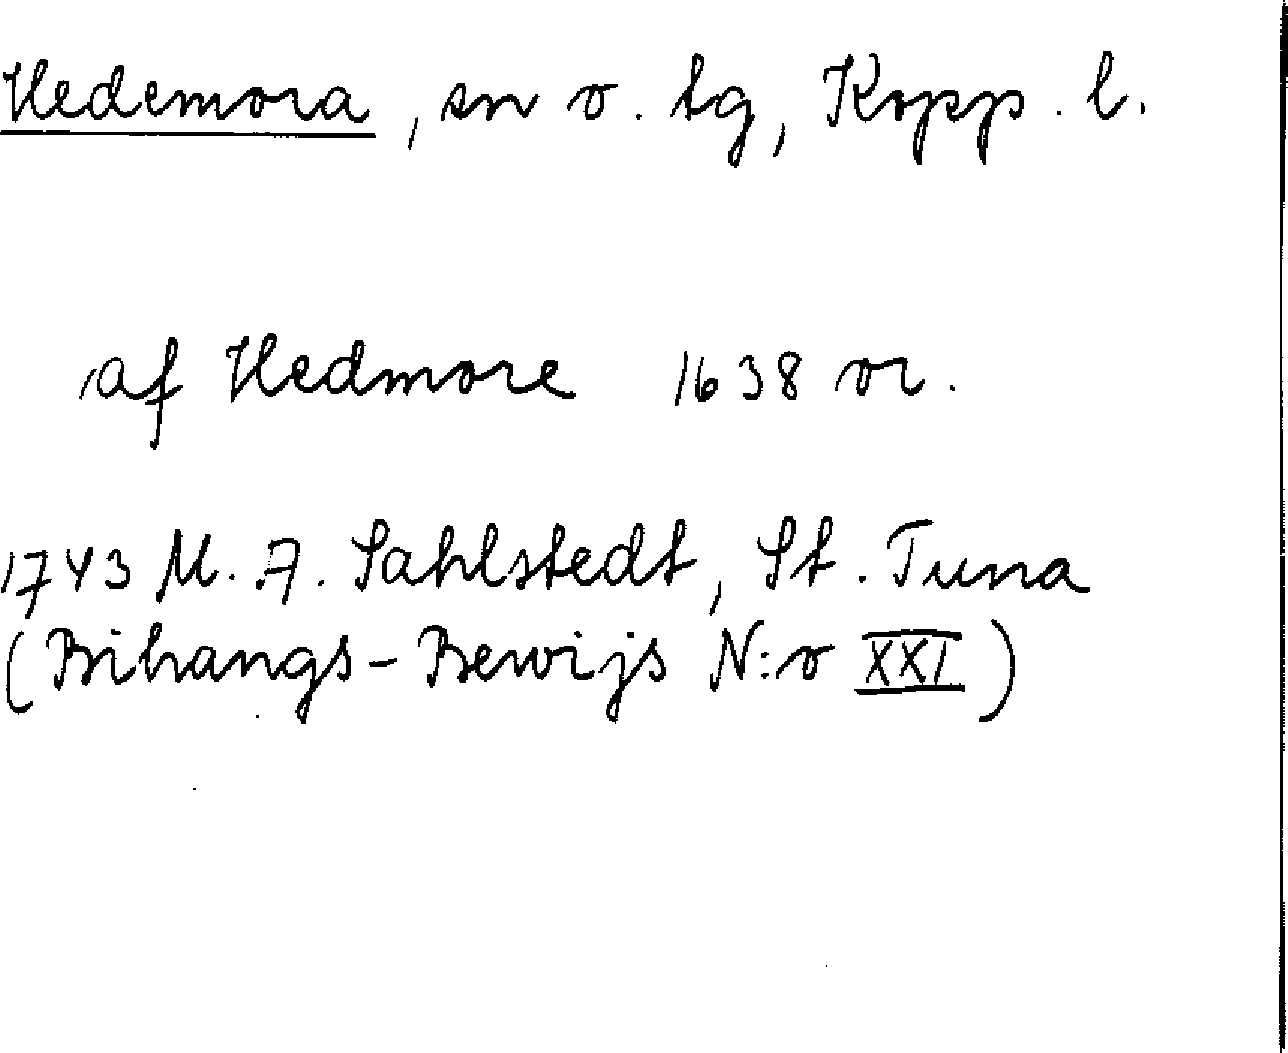 Hedemora, sn o. tg, Kopp. l.
af Hedmore 1638 or.
1743 M. A. Sahlstedt, St. Tuna
(Bihangs-Bewijs N:o XXI)